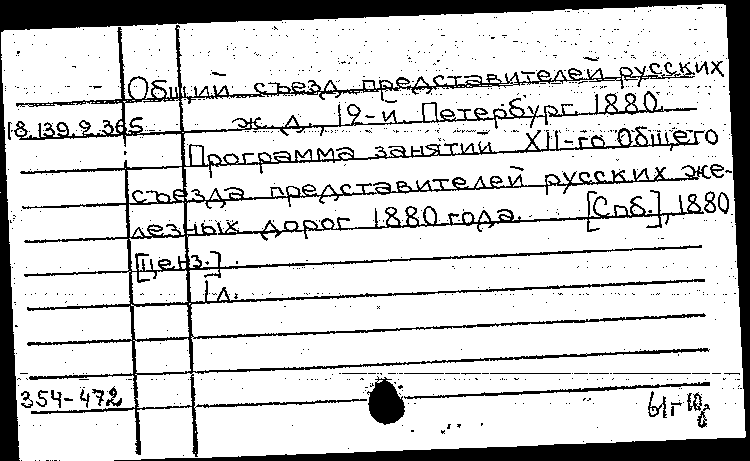 Общий съезд представителей русских
18.139.2.365 ж. д., 12-й. Петербург. 1880.
Программа занятий XII-го Общего
съезда представителей русских же-
лезных дорог 1880 года. [Спб.], 1880
[ценз.].
1 л.
354-472